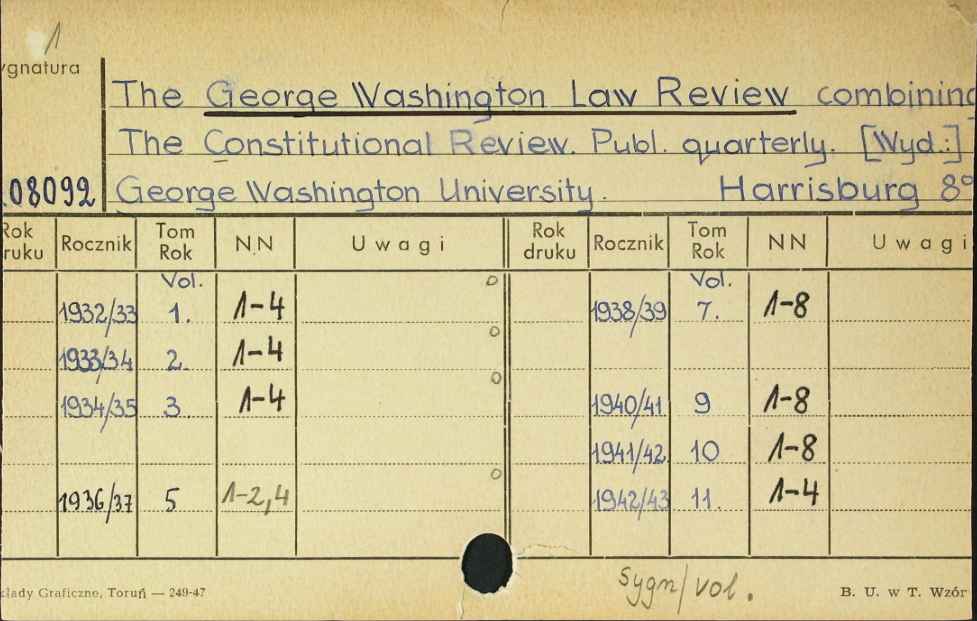 1
ygnatura
The George Washington Law Review combining
The Constitutional Review. Publ. quarterly. [Wyd.:]
08092 George Washington University. Harrisburg 8°
Rok druku Rocznik Tom Rok NN Uwagi Rok druku Rocznik Tom Rok NN Uwagi
Vol. Vol.
1932/33 1. 1-4 1938/39 7. 1-8
1933/34 2. 1-4
1934/35 3 1-4 1940/41 9 1-8
1941/42 10 1-8
1936/37 5 1-2,4 1942/43 11. 1-4
kłady Graficzne, Toruń — 249-47 sygn/vol. B. U. w T. Wzór